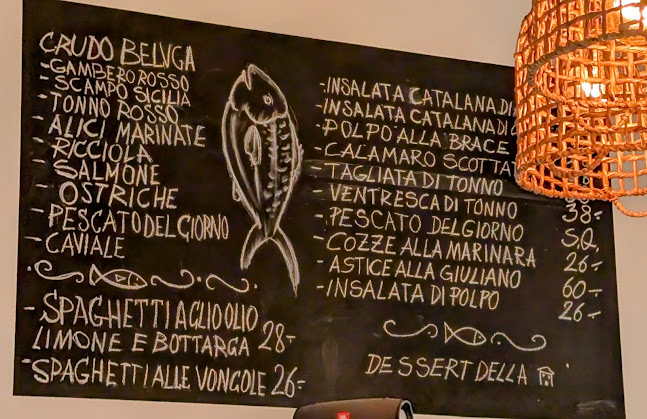 CRUDO BELUGA
-GAMBERO ROSSO
-SCAMPO SICILIA
-TONNO ROSSO
-ALICI MARINATE
-RICCIOLA
-SALMONE
-OSTRICHE
-PESCATO DEL GIORNO
-CAVIALE
-SPAGHETTI AGLIO OLIO
LIMONE E BOTTARGA 28-
-SPAGHETTI ALLE VONGOLE 26-
-INSALATA CATALANA DI
-INSALATA CATALANA DI
-POLPO ALLA BRACE
-CALAMARO SCOTTAT
-TAGLIATA DI TONNO
-VENTRESCA DI TONNO 38-
-PESCATO DEL GIORNO S.Q.
-COZZE ALLA MARINARA 26-
-ASTICE ALLA GIULIANO 60-
-INSALATA DI POLPO 26-
DESSERT DELLA